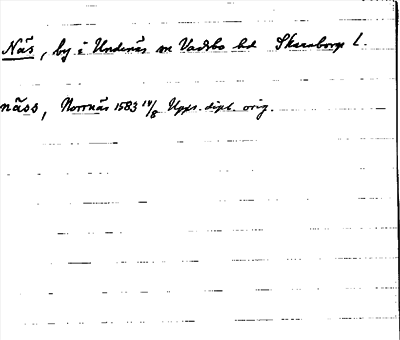 Näs, by i Undenäs sn Vadsbo hd Skaraborgs L.
näss, Norrnäs 1583 14/8 Upps. dipl. orig.